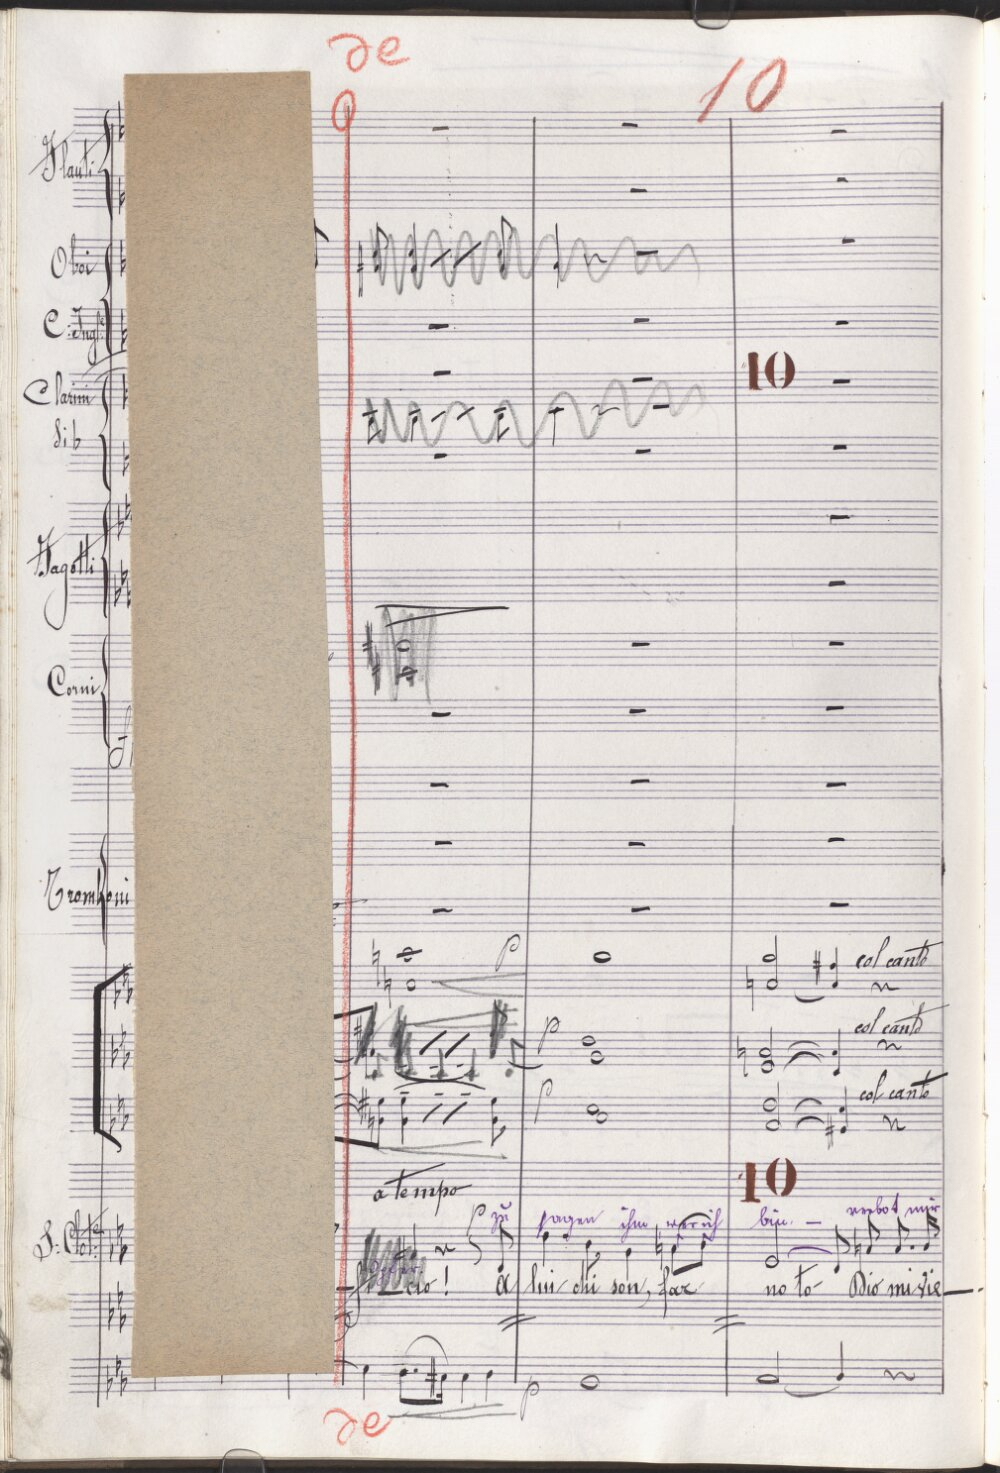 de
10
Flauti
Oboi
C. Ingl.
10
Clarini
Sib
Fagotti
Corni
Tromboni
p col canto
p col canto
p col canto
a tempo
10
p zu sagen ihm wer ich bin. — verbot mir
S. Clot.
cio! A lui chi son, far noto Dio mi vie—
p
de